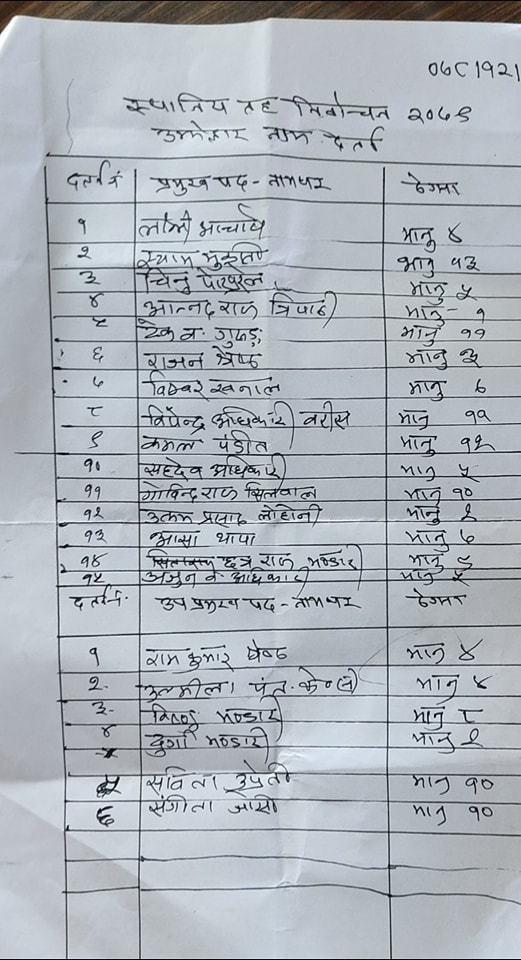 ०७८।१२।
स्थानिय तह निर्वाचन २०७९
उम्मेद्वार नाम दर्ता
दर्ता नं प्रमुख पद - नामथर ठेगाना
१ आचार्य भानु ४
२ श्याम भानु १३
३ चिनु पोखरेल भानु ५
४ आनन्द राज त्रिपाठी भानु - १
५ टेक व. गुरुङ भानु ११
६ राजन श्रेष्ठ भानु ३
७ खनाल भानु ७
८ विपेन्द्र अधिकारी भानु ११
९ कमल पंडीत भानु १२
१० सहदेव अधिकारी भानु ५
११ गोविन्द राज सिलवाल भानु १०
१२ उत्तम प्रसाद लोहोनी भानु २
१३ आसा थापा भानु ७
१४ छत्र राज भण्डारी भानु
१५ अर्जुन व. अधिकारी भानु
दर्ता नं. उप प्रमुख पद - नामथर ठेगाना
१ राम कुमार श्रेष्ठ भानु ४
२. उर्मीला पंत भानु ४
३. विष्णु भण्डारी भानु ८
४ दुर्गा भण्डारी भानु २
५ सविता उप्रेती भानु १०
६ संगीता जोसी भानु १०